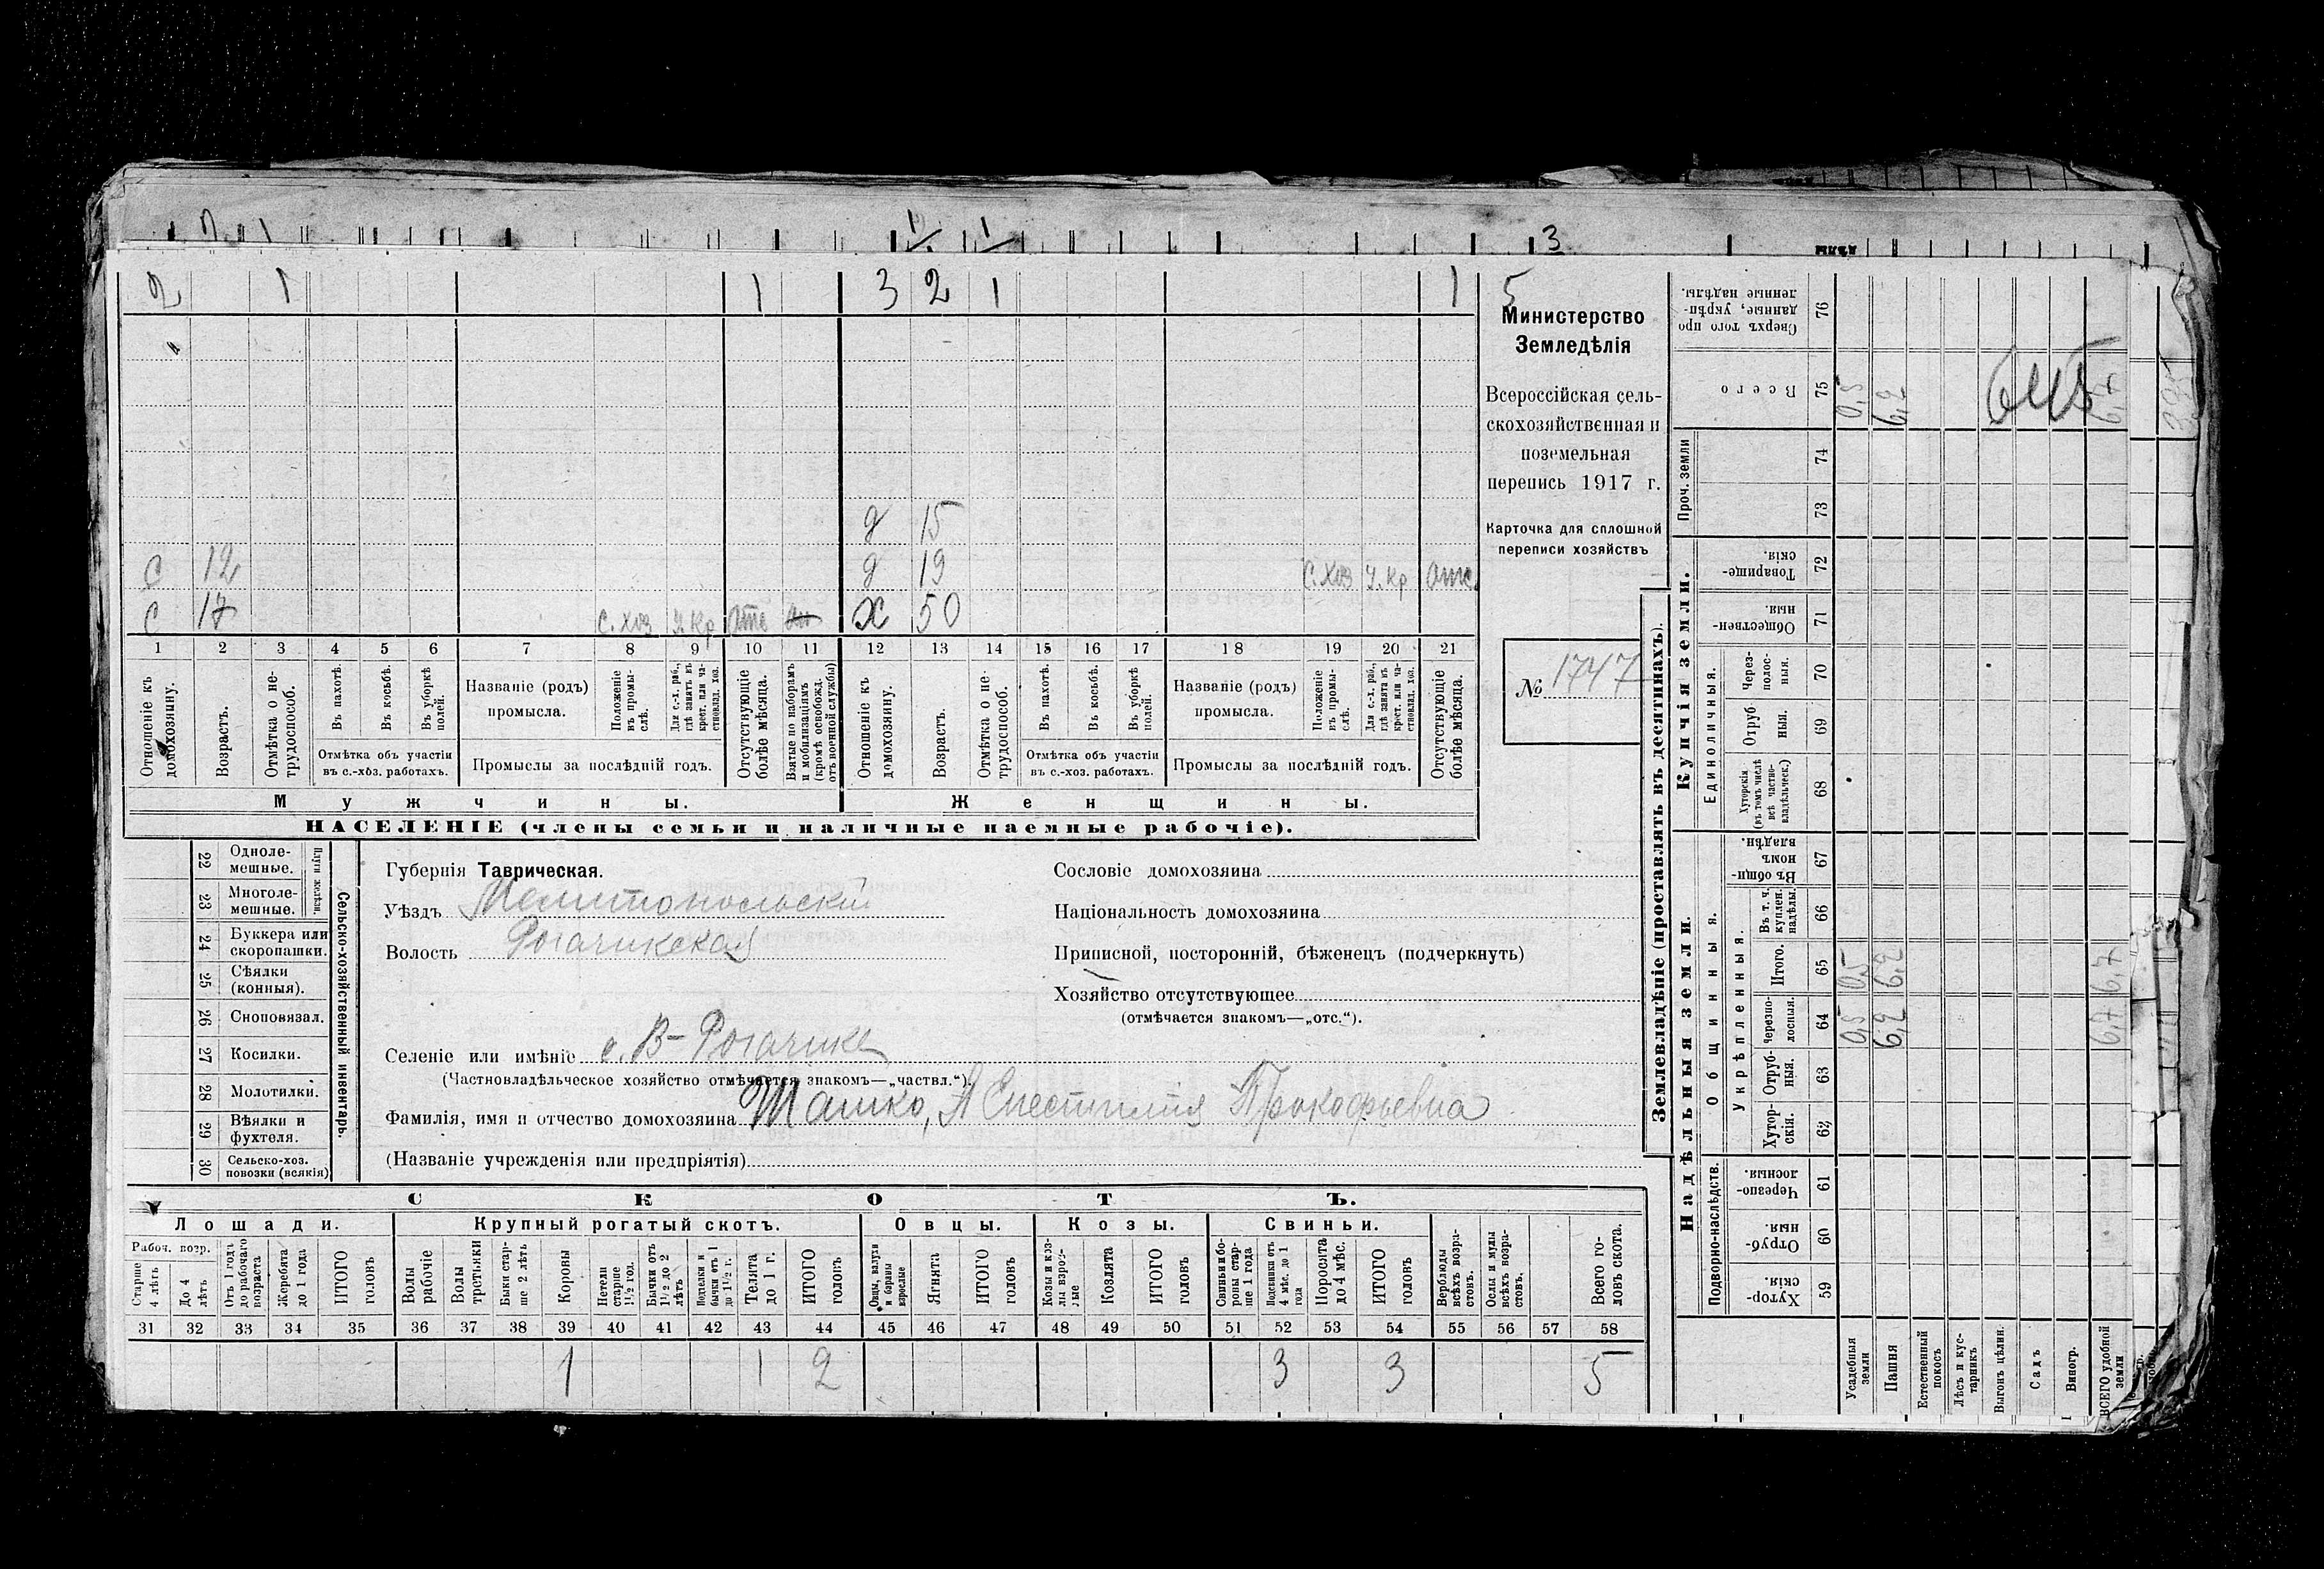 2 1 1 3 2 1 1 5
д 15
с 12 д 19 с.хоз ч.кр отс.
с 17 с.хоз ч.кр отс х 50
1 2 3 4 5 6 7 8 9 10 11 12 13 14 15 16 17 18 19 20 21
Отношеніе къ домохозяину.
Возрастъ.
Отмѣтка о нетрудоспособ.
Въ пахотѣ.
Въ косьбѣ.
Въ уборкѣ полей.
Отмѣтка объ участіи въ с.-хоз. работахъ.
Названіе (родъ) промысла.
Положеніе въ промыслѣ.
Для с.-х. раб., гдѣ занятъ въ крест. или частновлад. хоз.
Промыслы за послѣдній годъ.
Отсутствующіе болѣе мѣсяца.
Взятые по наборамъ и мобилизаціямъ (кромѣ освобожд. отъ военной службы)
Отношеніе къ домохозяину.
Возрастъ.
Отмѣтка о нетрудоспособ.
Въ пахотѣ.
Въ косьбѣ.
Въ уборкѣ полей.
Отмѣтка объ участіи въ с.-хоз. работахъ.
Названіе (родъ) промысла.
Положеніе въ промыслѣ.
Для с.-х. раб., гдѣ занята въ крест. или частновлад. хоз.
Промыслы за послѣдній годъ.
Отсутствующіе болѣе мѣсяца.
Мужчины. Женщины.
НАСЕЛЕНІЕ (члены семьи и наличные наемные рабочіе).
Министерство
Земледѣлія
Всероссійская сель-
скохозяйственная и
поземельная
перепись 1917 г.
Карточка для сплошной
переписи хозяйствъ
№ 1747
Сельско-хозяйственный инвентарь.
Плуги желѣзн.
22 Одноле-
мешные.
23 Многоле-
мешные.
24 Буккера или
скоропашки.
25 Сѣялки
(конныя).
26 Сноповязал.
27 Косилки.
28 Молотилки.
29 Вѣялки и
фухтеля.
30 Сельско-хоз.
повозки (всякія)
Губернія Таврическая.
Уѣздъ Мелитопольскій
Волость Рогачикская
Селеніе или имѣніе с. В-Рогачикъ
(Частновладѣльческое хозяйство отмѣчается знакомъ—„частвл.“).
Фамилія, имя и отчество домохозяина Прокофьевна
(Названіе учрежденія или предпріятія)
Сословіе домохозяина
Національность домохозяина
Приписной, посторонній, бѣженецъ (подчеркнуть)
Хозяйство отсутствующее
(отмѣчается знакомъ—„отс.“).
СКОТЪ.
Лошади. Крупный рогатый скотъ. Овцы. Козы. Свиньи.
Рабоч. возр.
Старше 4 лѣтъ
До 4 лѣтъ
Отъ 1 года до рабочаго возраста
Жеребята до 1 года
ИТОГО головъ
Волы рабочіе
Волы третьяки
Быки старше 2 лѣтъ
Коровы
Нетели старше 1½ год.
Бычки отъ 1½ до 2 лѣтъ
Подтелки и бычки отъ 1 до 1½ г.
Телята до 1 г.
ИТОГО головъ
Овцы, валухи и бараны взрослые
Ягнята
ИТОГО головъ
Козы и козлы взрослые
Козлята
ИТОГО головъ
Свиньи и бороны старше 1 года
Подсвинки отъ 4 мѣс. до 1 года
Поросята до 4 мѣс.
ИТОГО головъ
Верблюды всѣхъ возрастовъ.
Ослы и мулы всѣхъ возрастовъ.
Всего головъ скота.
31 32 33 34 35 36 37 38 39 40 41 42 43 44 45 46 47 48 49 50 51 52 53 54 55 56 57 58
1 1 2 3 3 5
Землевладѣніе (проставлять въ десятинахъ).
Надѣльныя земли. Купчія земли. Проч. земли
Подворно-наслѣдств.
Общинныя.
Укрѣпленныя.
Единоличныя.
Хуторскія. 59
Отрубныя 60
Черезполосныя 61
Хуторскія. 62
Отрубныя. 63
черезполосныя. 64
Итого. 65
Въ т. ч. куплен. надѣлы. 66
Въ общинномъ владѣн. 67
Хуторскія (въ томъ числѣ всѣ частновладѣльческ.) 68
Отрубныя. 69
Черезполосныя. 70
Общественныя 71
Товарищескія. 72
73
74
Всего 75
Сверхъ того проданные, укрѣпленные надѣлы. 76
Усадебныя земли 0,5 0,5 0,5
Пашня 6,2 6,2 6,2
Естественный покосъ
Лѣсъ и кустарникъ
Выгонъ цѣлин.
Садъ
Виногр.
ВСЕГО удобной земли 6,7 6,7 6,7